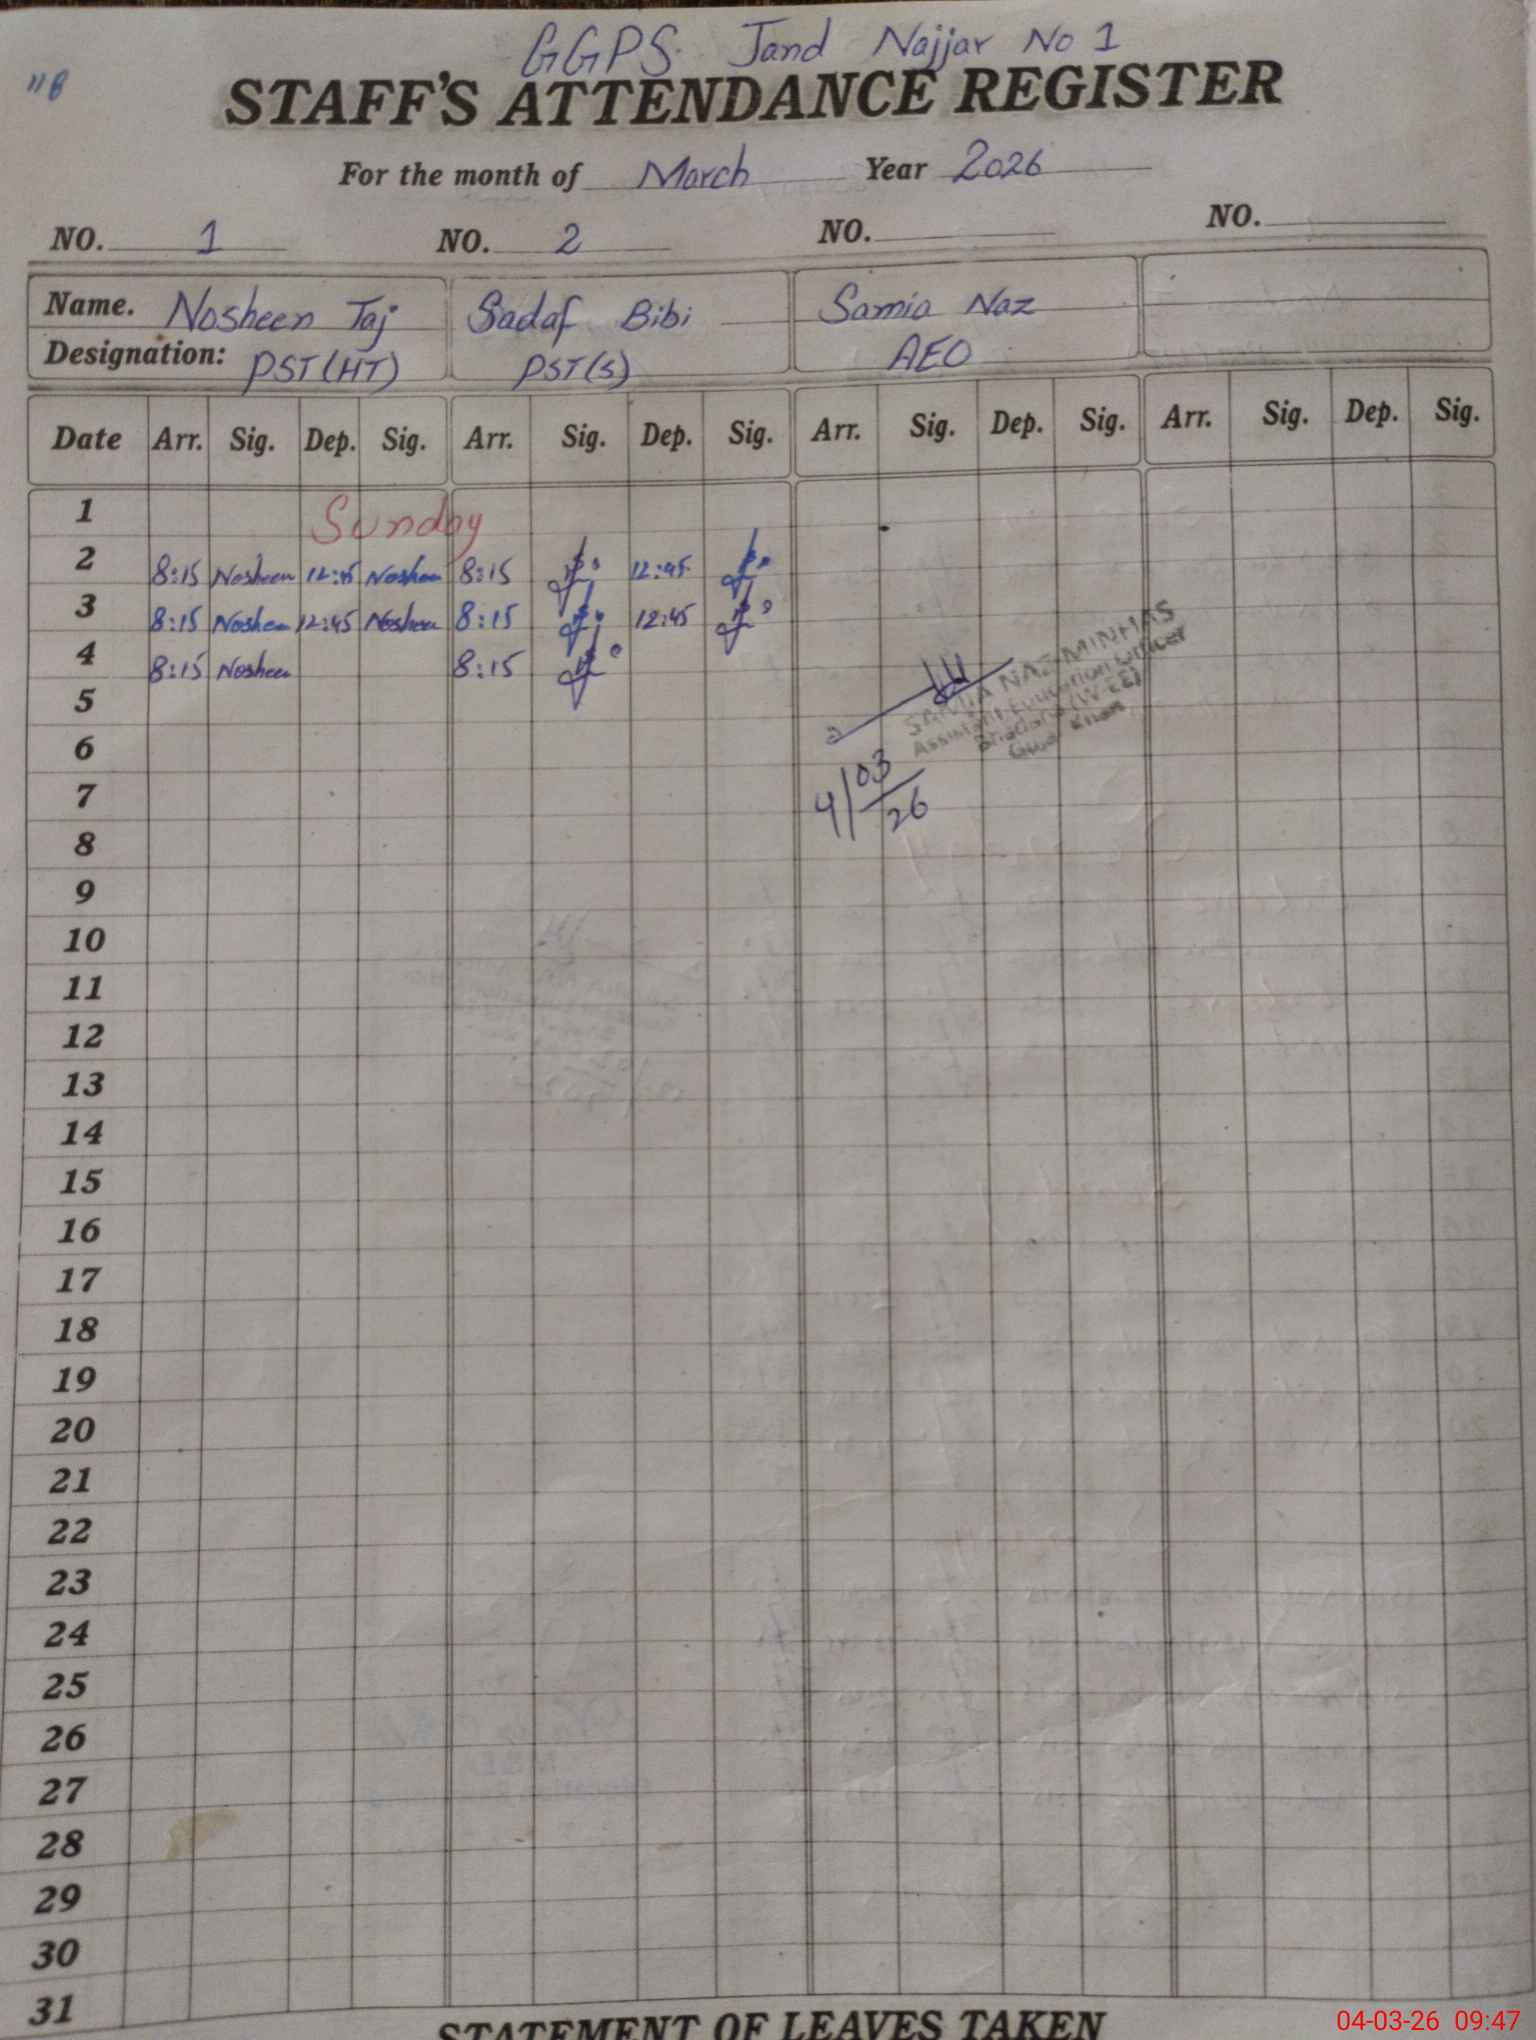 GGPS Jand Najjar No 1
"8
STAFF'S ATTENDANCE REGISTER
For the month of March Year 2026
NO. 1 NO. 2 NO. NO.
Name. Nosheen Taj Sadaf Bibi Samia Naz
Designation: PST(HT) PST(S) AEO
Date Arr. Sig. Dep. Sig. Arr. Sig. Dep. Sig. Arr. Sig. Dep. Sig. Arr. Sig. Dep. Sig.
1 Sunday
2 8:15 Nosheen 12:45 Nosheen 8:15 12:45
3 8:15 Nosheen 12:45 Nosheen 8:15 12:45
4 8:15 Nosheen 8:15
SAMIA NAZ MINHAS
Assistant Education Officer
(W-EE)
Gujar Khan
5
6
7
4/03/26
8
9
10
11
12
13
14
15
16
17
18
19
20
21
22
23
24
25
26
27
28
29
30
31
STATEMENT OF LEAVES TAKEN
04-03-26 09:47